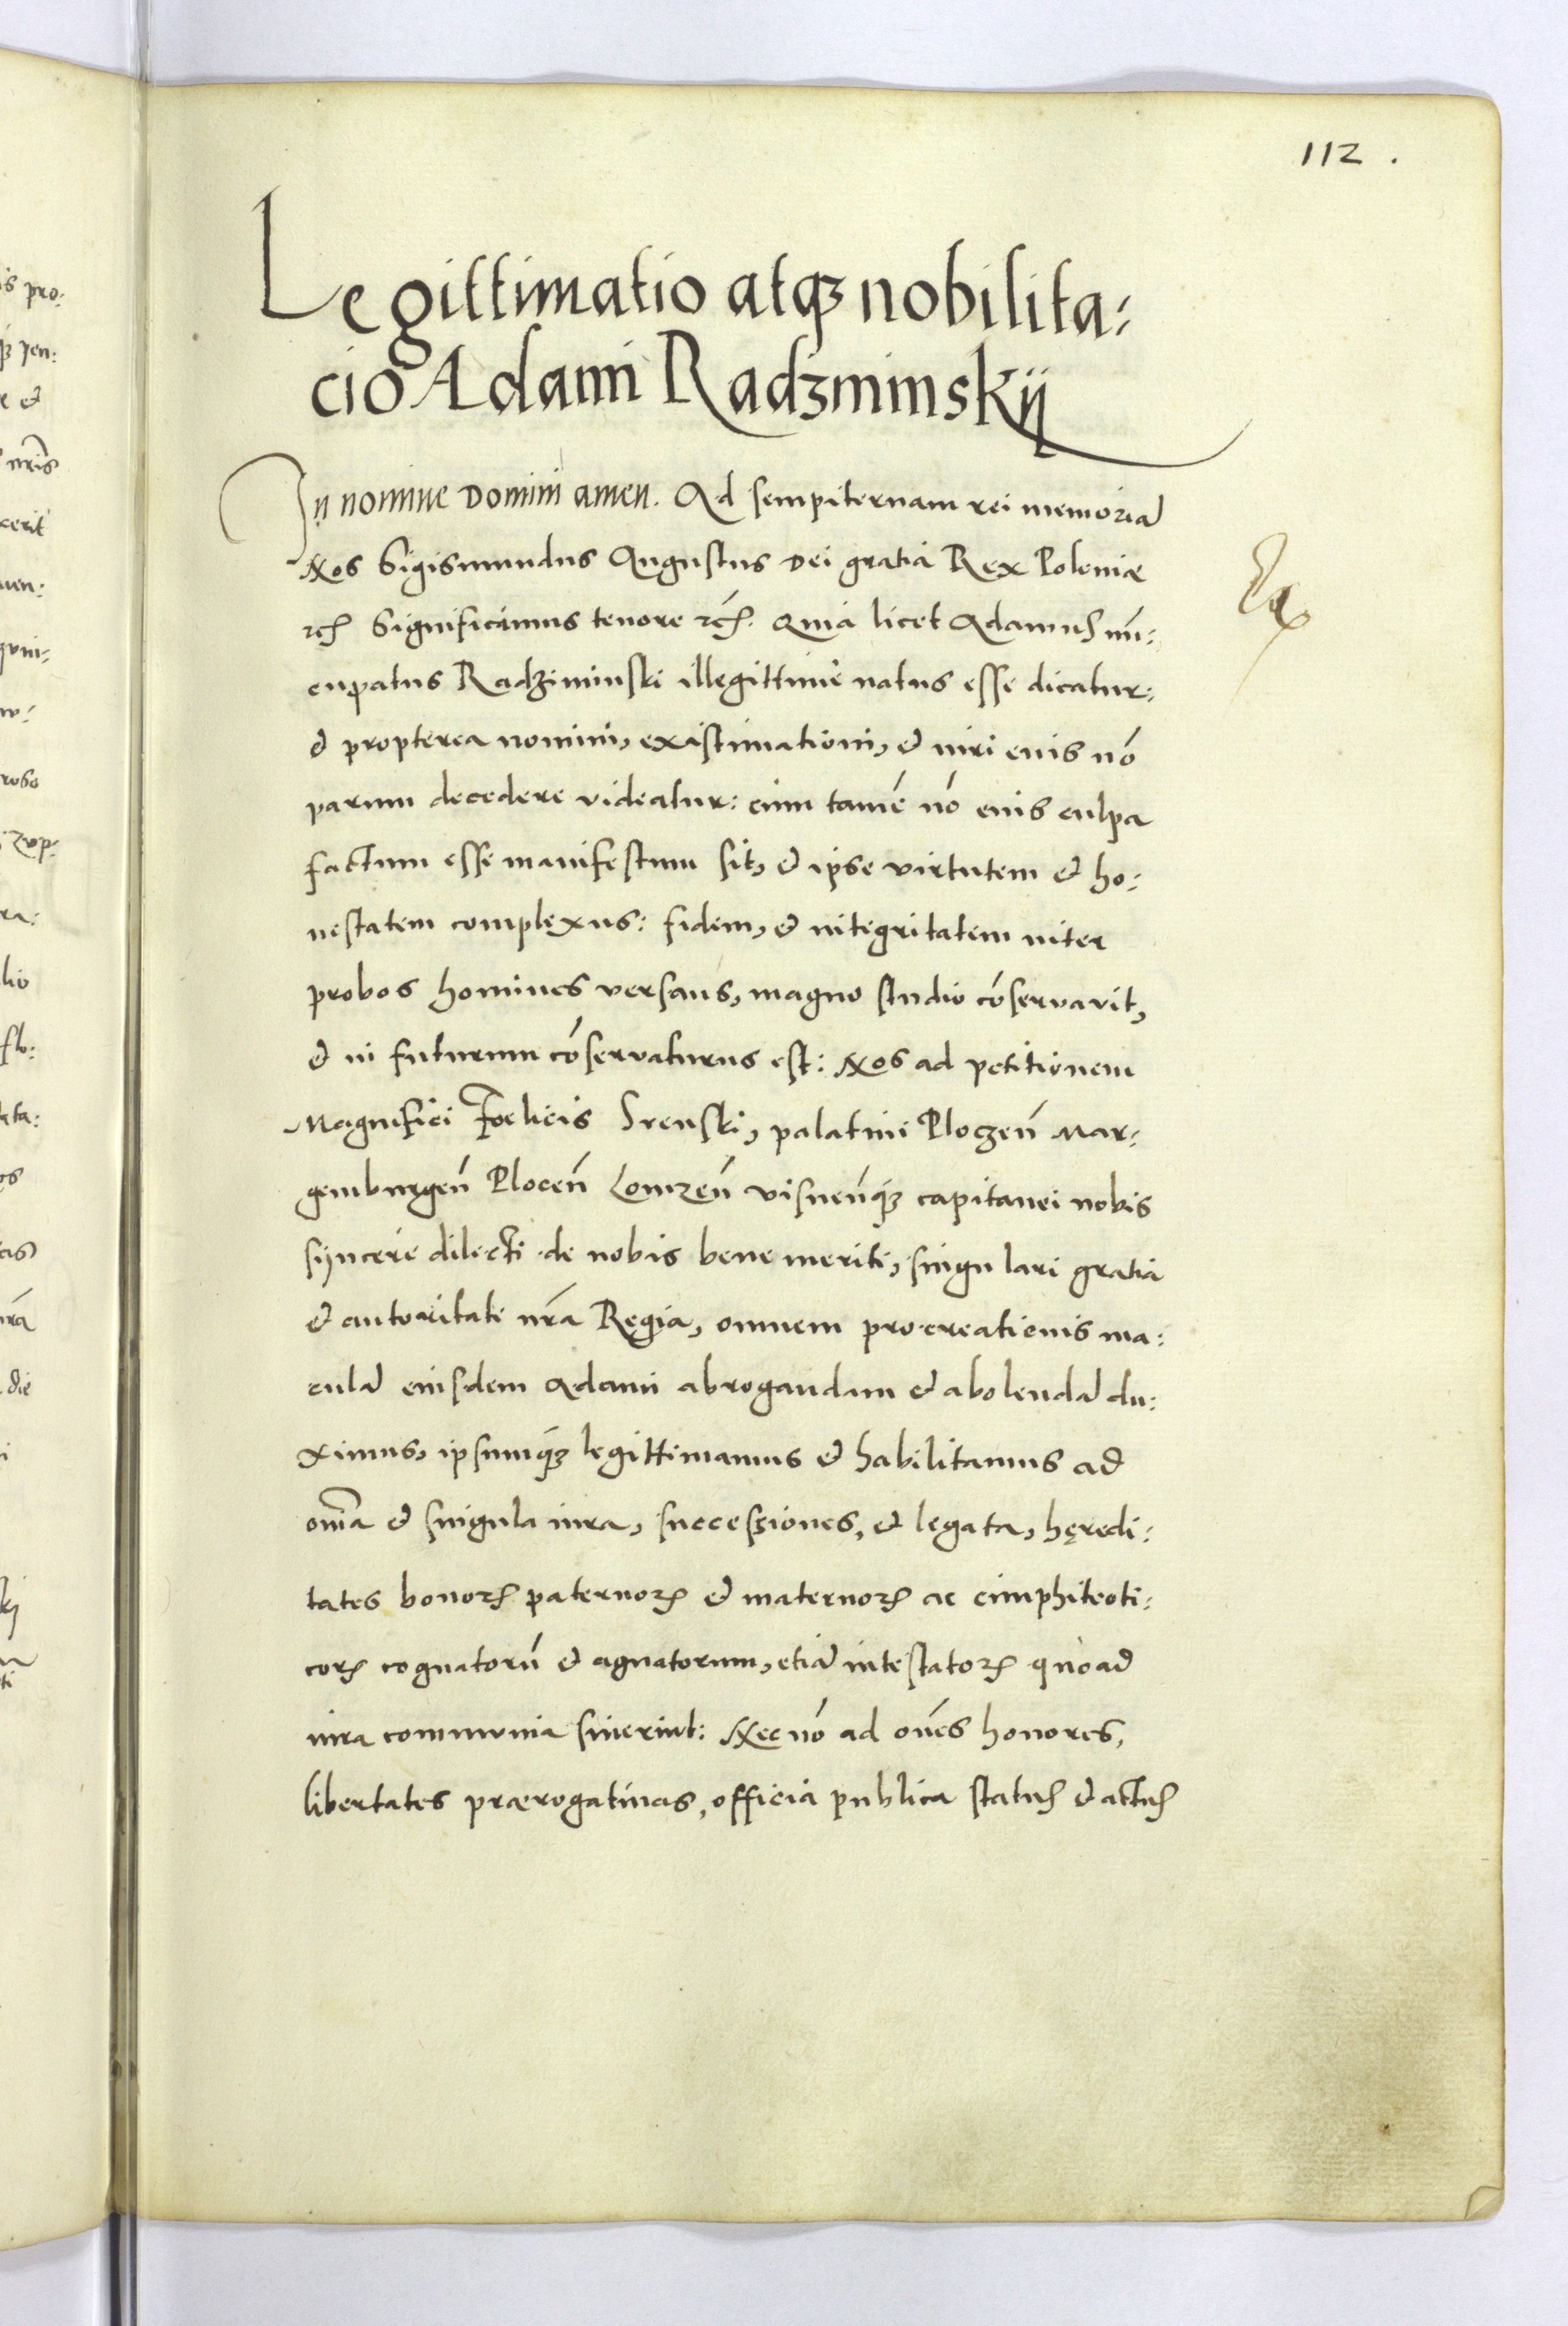 112.
Legittimatio atqꝫ nobilita:
cio Adami Radzminskij
In nomine Domini amen. Ad sempiternam rei memoriā
Nos Sigismundus Augustus Dei gratia Rex Poloniæ
ꝛcꝫ Significamus tenore ꝛcꝫ. Quia licet Adamus nū:
cupatus Radziminski illegittime natus esse dicatur:
& propterea nomini, existimationi, & iuri euis nō
parum decedere videatur: cum tamē nō euis culpa
factum esse manifestum sit, & ipse virtutem & ho:
nestatem complexus: fidem, & integritatem inter
probos homines versans, magno studio cōservavit,
& in futurum cōservaturus est: Nos ad petitionem
Magnifici Foelicis Srenski, palatini Ploczeñ Mar:
gemburgeñ Ploceñ Lomzeñ Visneñqꝫ capitanei nobis
syncere dilecti de nobis bene meriti, singulari gratia
& autoritate nr̄a Regia, omnem procreationis ma:
culā eiusdem Adami abrogandam & abolendā du:
ximus, ipsumqꝫ legittimamus & habilitamus ad
om̄ia & singula iura, successiones, & legata, hęredi:
tates bonoꝝ paternoꝝ & maternoꝝ ac eimphiteoti:
coꝝ cognatorū & agnatorum, etiā intestatoꝝ quoad
iura communia siverint: Nec nō ad om̄es honores,
libertates prærogativas, officia publica status & actus